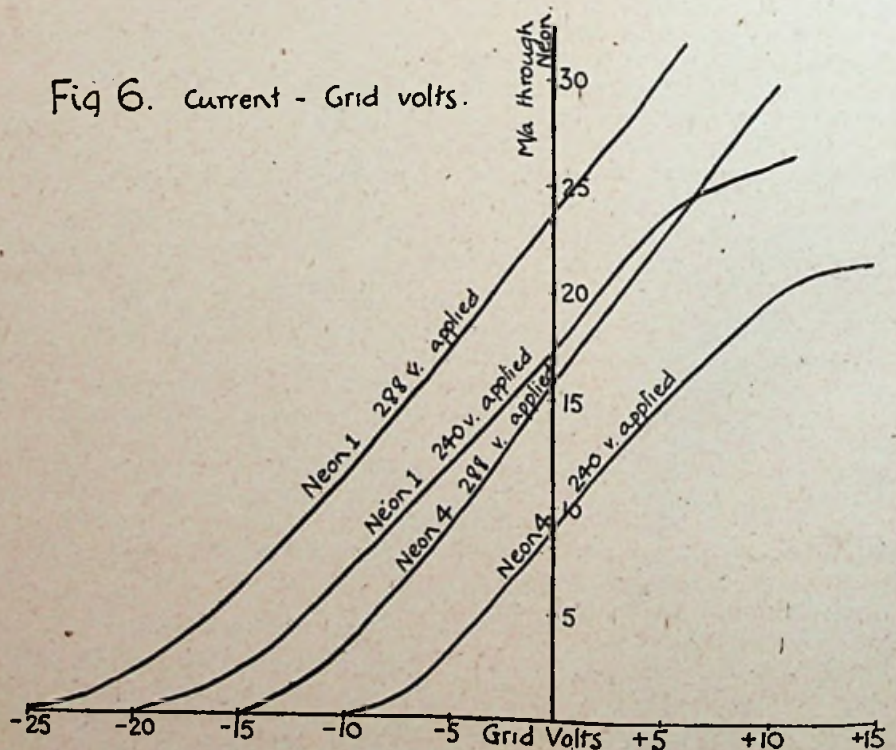 Fig 6. Current - Grid volts.
M/a through
Neon.
30
25
20
15
5
Neon 1 288 v. applied
Neon 1 240 v. applied
Neon 4 288 v. applied
Neon 4 240 v. applied
-25 -20 -15 -10 -5 Grid Volts +5 +10 +15